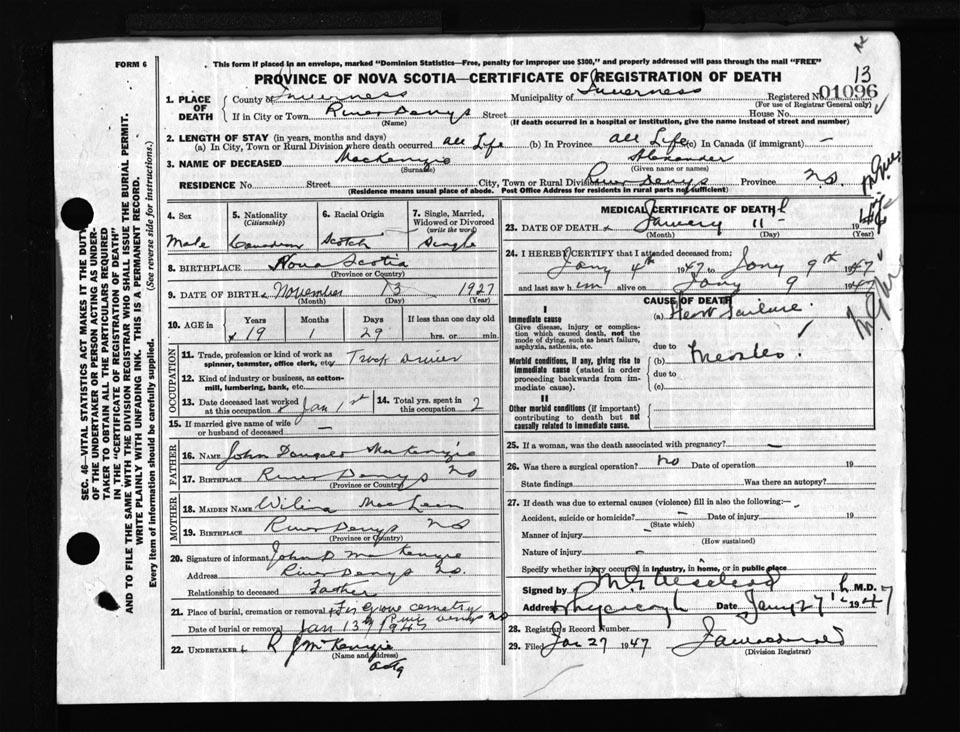 FORM 6
This form if placed in an envelope, marked "Dominion Statistics—Free, penalty for improper use $300," and properly addressed will pass through the mail "FREE"
PROVINCE OF NOVA SCOTIA—CERTIFICATE OF REGISTRATION OF DEATH
13
Registered No. 01096
(For use of Registrar General only)
1. PLACE OF DEATH
County of Inverness Municipality of Inverness
If in City or Town River Denys Street House No.
(Name) (If death occurred in a hospital or institution, give the name instead of street and number)
2. LENGTH OF STAY (in years, months and days)
(a) In City, Town or Rural Division where death occurred all Life (b) In Province all Life (c) In Canada (if immigrant) —
3. NAME OF DECEASED MacKenzie Alexander
(Surname) (Given name or names)
RESIDENCE No. Street City, Town or Rural Division River Denys Province N.S.
(Residence means usual place of abode. Post Office Address for residents in rural parts not sufficient)
4. Sex
Male
5. Nationality
(Citizenship)
Canadian
6. Racial Origin
Scotch
7. Single, Married, Widowed or Divorced
(write the word)
Single
8. BIRTHPLACE Nova Scotia
(Province or Country)
9. DATE OF BIRTH November 13 1927
(Month) (Day) (Year)
10. AGE in Years Months Days If less than one day old
19 1 29 hrs. or min.
OCCUPATION
11. Trade, profession or kind of work as spinner, teamster, office clerk, etc. Truck Driver
12. Kind of industry or business, as cotton-mill, lumbering, bank, etc.
13. Date deceased last worked at this occupation Jan 1st
14. Total yrs. spent in this occupation 2
15. If married give name of wife or husband of deceased —
FATHER
16. Name John Dougald MacKenzie
17. Birthplace River Denys NS
(Province or Country)
MOTHER
18. Maiden Name MacLean
19. Birthplace River Denys NS
(Province or Country)
20. Signature of informant John D MacKenzie
Address River Denys N.S.
Relationship to deceased Father
21. Place of burial, cremation or removal cemetery River Denys NS
Date of burial or removal Jan 13 1947
22. UNDERTAKER R J McKenzie
(Name and Address)
MEDICAL CERTIFICATE OF DEATH
23. DATE OF DEATH January 11 19
(Month) (Day) (Year)
24. I HEREBY CERTIFY that I attended deceased from:
Jany 4th 1947 to Jany 9th 1947
and last saw him alive on Jany 9 1947
CAUSE OF DEATH
I
Immediate cause
Give disease, injury or complication which caused death, not the mode of dying, such as heart failure, asphyxia, asthenia, etc.
(a) Heart Failure
due to
Morbid conditions, if any, giving rise to immediate cause (stated in order proceeding backwards from immediate cause).
(b) Measles
due to
(c)
II
Other morbid conditions (if important) contributing to death but not causally related to immediate cause.
25. If a woman, was the death associated with pregnancy? —
26. Was there a surgical operation? no Date of operation 19
State findings Was there an autopsy?
27. If death was due to external causes (violence) fill in also the following:—
Accident, suicide or homicide? — Date of injury 19
(State which)
Manner of injury
(How sustained)
Nature of injury
Specify whether injury occurred in industry, in home, or in public place
Signed by M.D.
Address Whycocomagh Date Jany 27th 1947
28. Registrar's Record Number
29. Filed Jan 27 1947
(Division Registrar)
SEC. 46—VITAL STATISTICS ACT MAKES IT THE DUTY
OF THE UNDERTAKER OR PERSON ACTING AS UNDER-
TAKER TO OBTAIN ALL THE PARTICULARS REQUIRED
IN THE "CERTIFICATE OF REGISTRATION OF DEATH"
AND TO FILE THE SAME WITH THE DIVISION REGISTRAR WHO SHALL ISSUE THE BURIAL PERMIT.
WRITE PLAINLY WITH UNFADING INK. THIS IS A PERMANENT RECORD.
Every item of information should be carefully supplied. (See reverse side for instructions.)